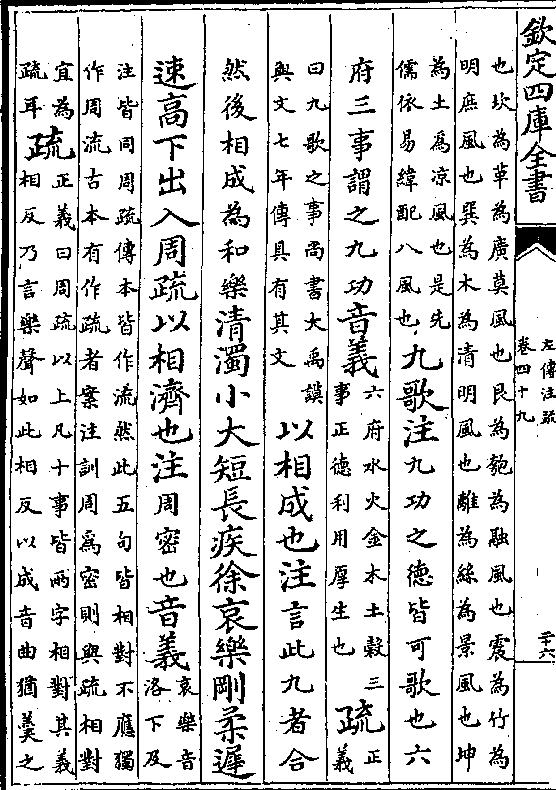 欽定四庫全書
左傳注疏
卷四十九
二十六
也坎為革為廣莫風也艮為匏為融風也震為竹為
明庶風也巽為木為清明風也離為絲為景風也坤
為土為涼風也是先
儒依易緯配八風也
九歌注九功之德皆可歌也六
府三事謂之九功音義
六府水火金木土穀三
事正德利用厚生也
疏
正
義
曰九歌之事尚書大禹謨
與文七年傳具有其文
以相成也注言此九者合
然後相成為和樂清濁小大短長疾徐哀樂剛柔遲
速高下出入周疏以相濟也注周密也音義
哀樂音
洛下及
注皆同周疏傳本皆作流然此五句皆相對不應獨
作周流古本有作疏者案注訓周爲密則與疏相對
宜為
疏耳
疏
正義曰周疏以上凡十事皆兩字相對其義
相反乃言樂聲如此相反以成音曲猶羹之